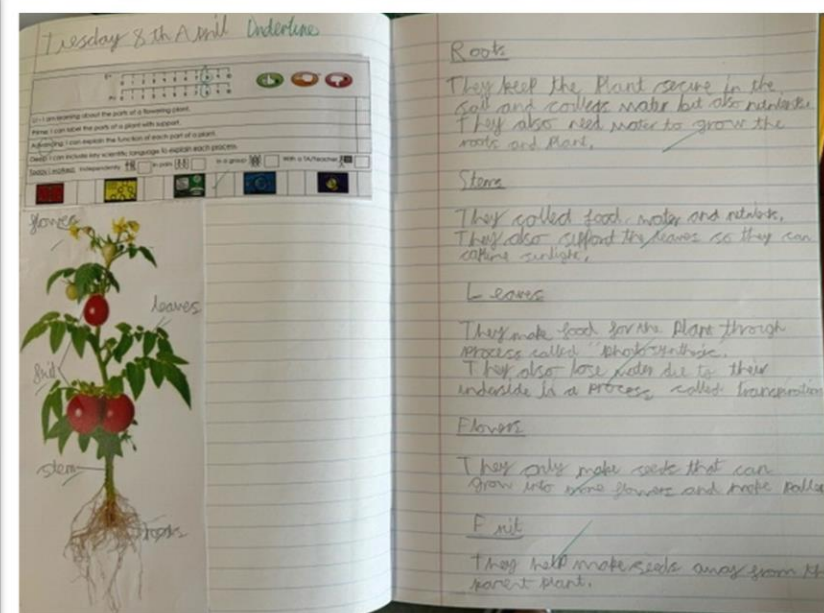 Tuesday 8th April Underline
LI- I am learning about the parts of a flowering plant.
Prime: I can label the parts of a plant with support.
Advancing: I can explain the function of each part of a plant.
Deep: I can include key scientific language to explain each process.
Today I worked: Independently In pairs In a group With a TA/teacher
flower
leaves
fruit
stem
roots
Roots
They keep the Plant secure in the
soil and water but also
They also need water to grow the
roots and Plant.
Stems
They food, water and
They also support the leaves so they can
sunlight.
Leaves
They make food for the Plant through
process called "photosynthesis.
They also lose water due to their
underside in a process called Transpiration
Flowers
They only make seeds that can
grow into more flowers and make
Fruit
They help make seeds away from th
parent plant.